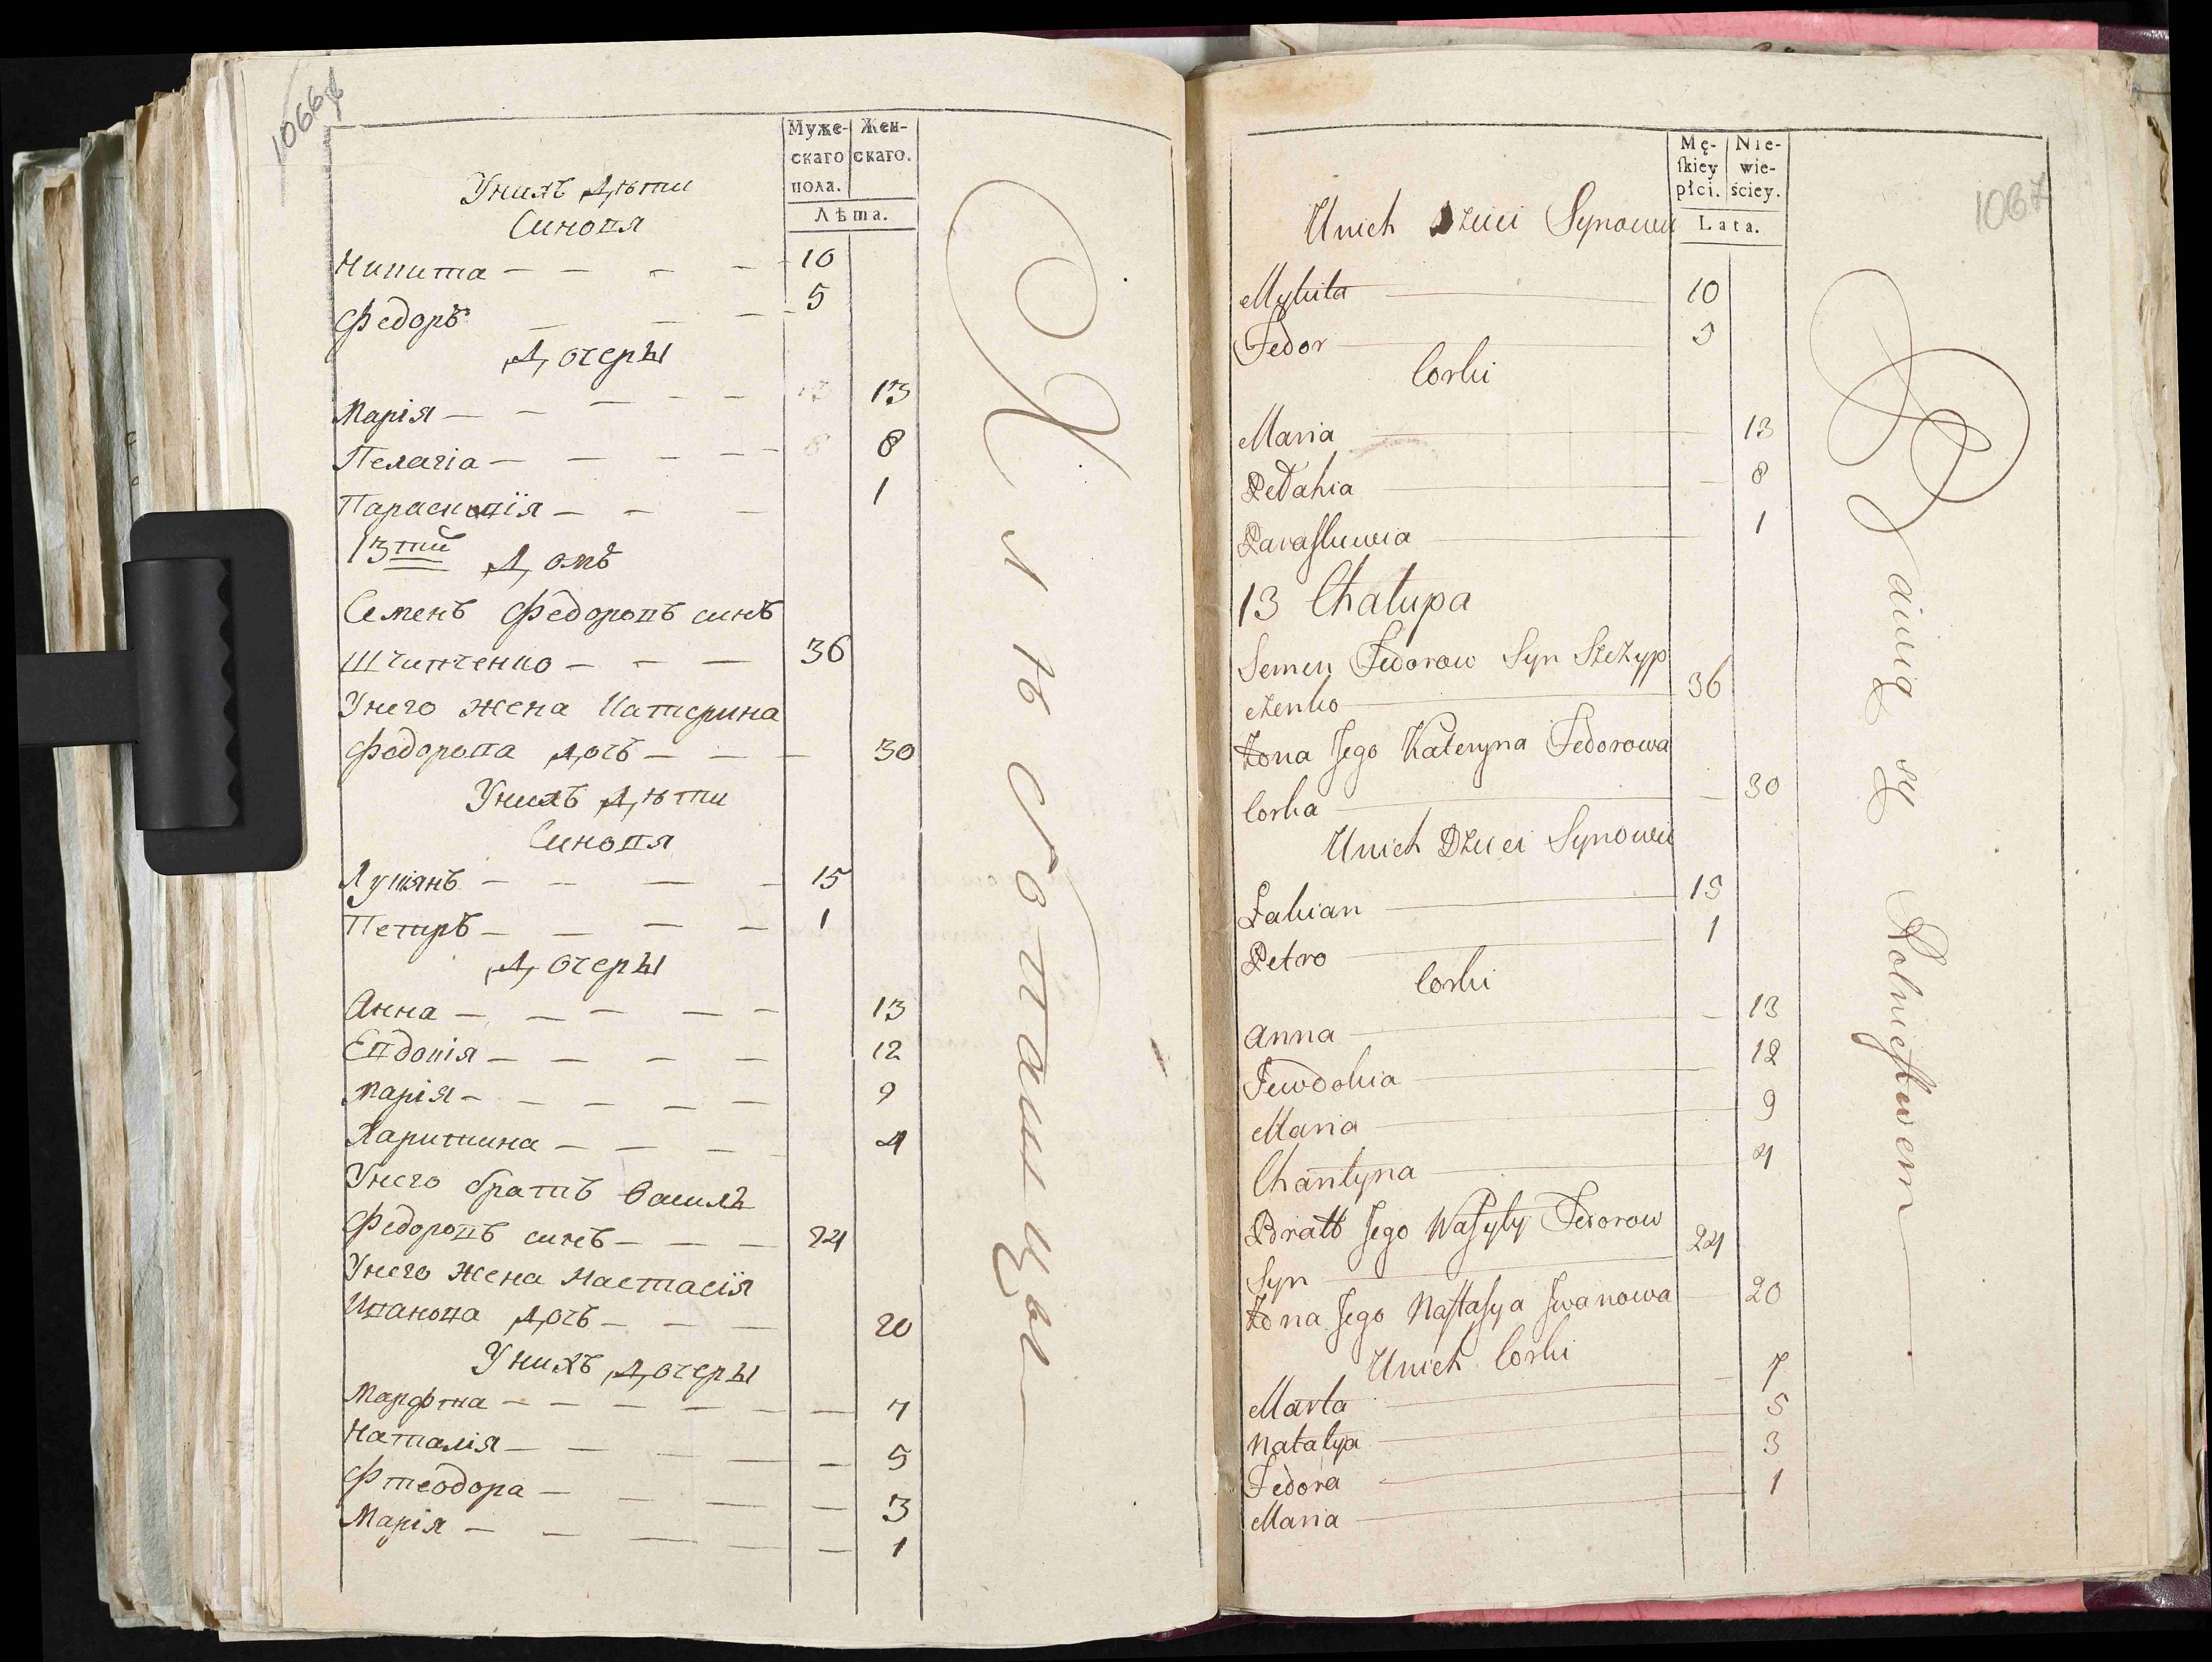 1066
Муже- Жен-
скаго скаго.
пола.
Лѣта.
Унихъ Дѣти
Синовя
Никита — — — — 10
Федоръ — — — 5
Дочеры
Марія — — — — — 13 13
Пелагіа — — — — — 8 8
Параскивія — — — 1
13тий Домъ
Семенъ Федоровъ синъ
Шчипченко — — — 36
Унего жена Катерина
Федорова дочь — — — 30
Унихъ Дѣти
Синовя
Лукіянъ — — — — 15
Петръ — — — — 1
Дочеры
Анна — — — — — 13
Евдокія — — — — 12
Марія — — — — — 9
Харитина — — — — 4
Унего братъ Василь
Федоровъ синъ — — — 24
Унего жена Настасія
Иванова дочь — — — 20
Унихъ Дочеры
Марфта — — — — — — 7
Наталія — — — — — 5
Фтеодора — — — — — 3
Марія — — — — — 1
Хлѣбопашцы
1067
Mę- Nie-
ſkiey wie-
płci. ściey.
Lata.
Unich Dzieci Synowie
Mykita 10
Fedor 5
Corki
Maria 13
Pełahia 8
Paraſkuwia 1
13 Chałupa
Semen Fedorow Syn Szczyp
czenko 36
Zona Jego Kateryna Fedorowa
Corka 30
Unich Dzieci Synowie
Łukian 15
Petro 1
Corki
Anna 13
Jewdokia 12
Maria 9
Charityna 4
Bratt Jego Waſyly Fedorow
Syn 24
Zona Jego Naſtaſya Jwanowa 20
Unich Corki
Marta 7
Natalya 5
Fedora 3
Maria 1
Bawią się Rolnictwem